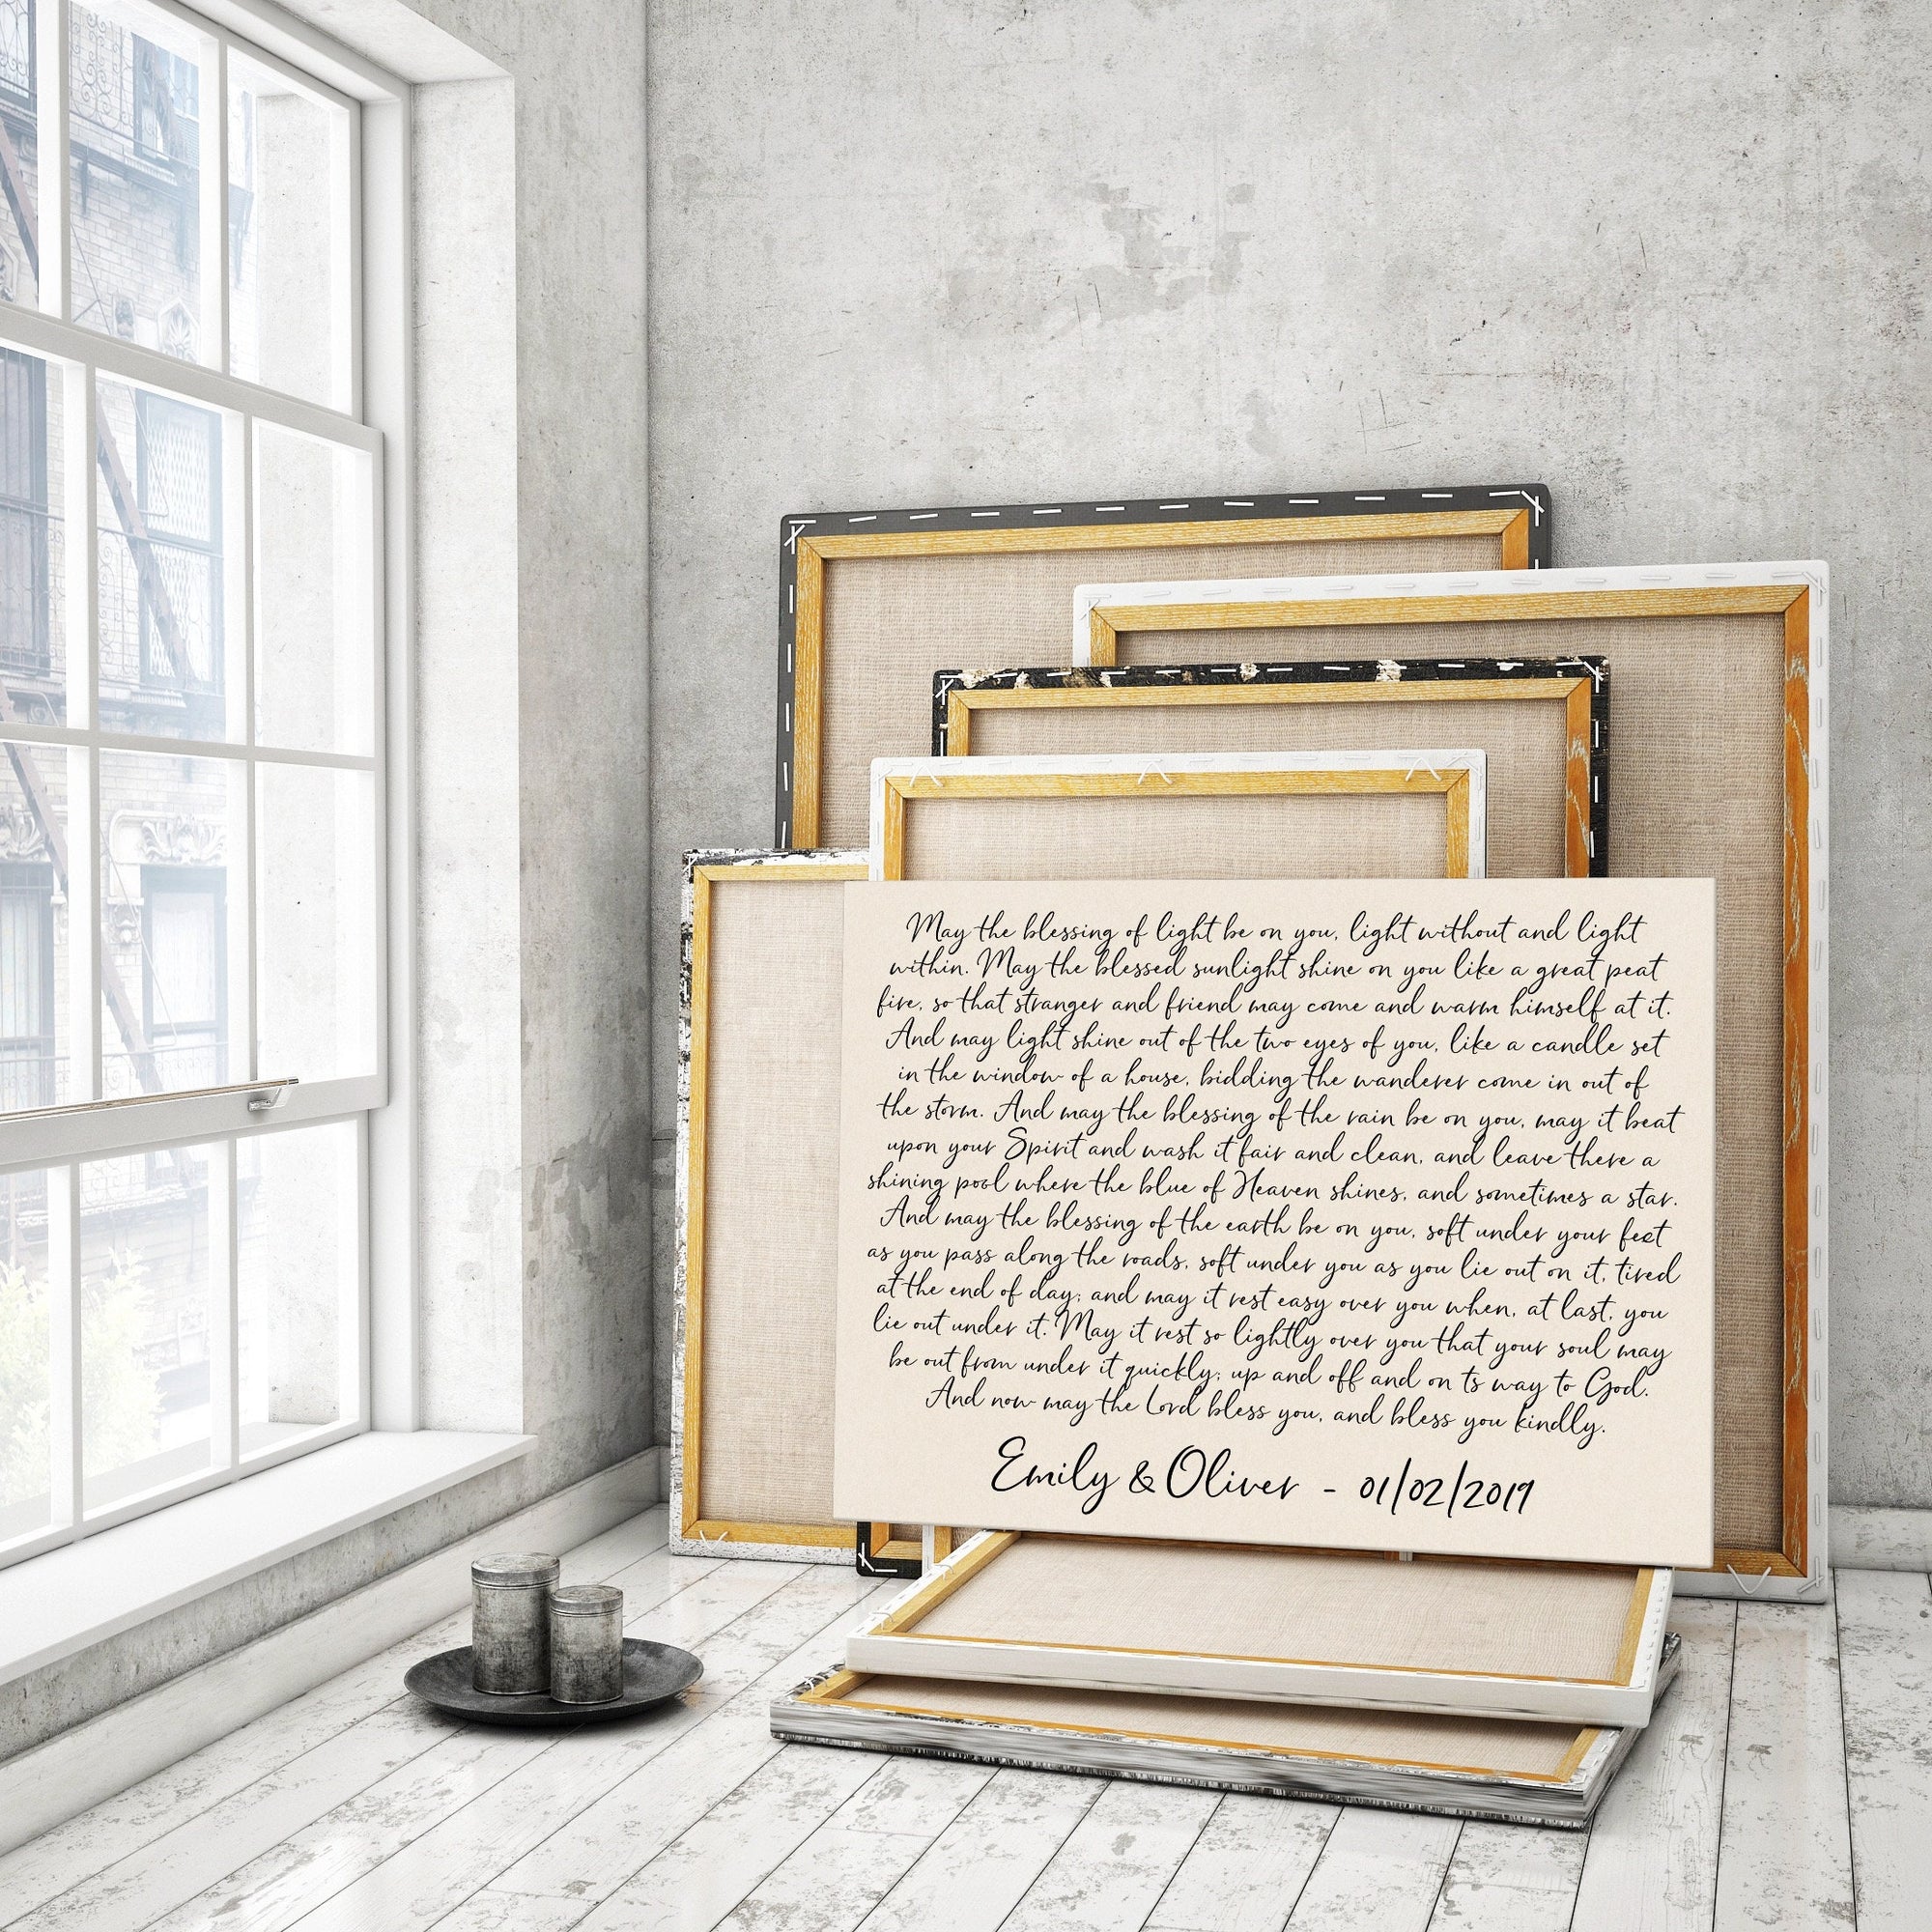 May the blessing of light be on you, light without and light
within. May the blessed sunlight shine on you like a great peat
fire, so that stranger and friend may come and warm himself at it.
And may light shine out of the two eyes of you, like a candle set
in the window of a house, bidding the wanderer come in out of
the storm. And may the blessing of the rain be on you, may it beat
upon your Spirit and wash it fair and clean, and leave there a
shining pool where the blue of Heaven shines, and sometimes a star.
And may the blessing of the earth be on you, soft under your feet
as you pass along the roads, soft under you as you lie out on it, tired
at the end of day; and may it rest easy over you when, at last, you
lie out under it. May it rest so lightly over you that your soul may
be out from under it quickly; up and off and on ts way to God.
And now may the Lord bless you, and bless you kindly.
Emily & Oliver - 01/02/2019